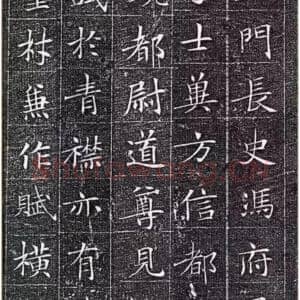 門長史馮府
士冀方信都
都尉道尊見
於青襟亦有
兼作賦橫